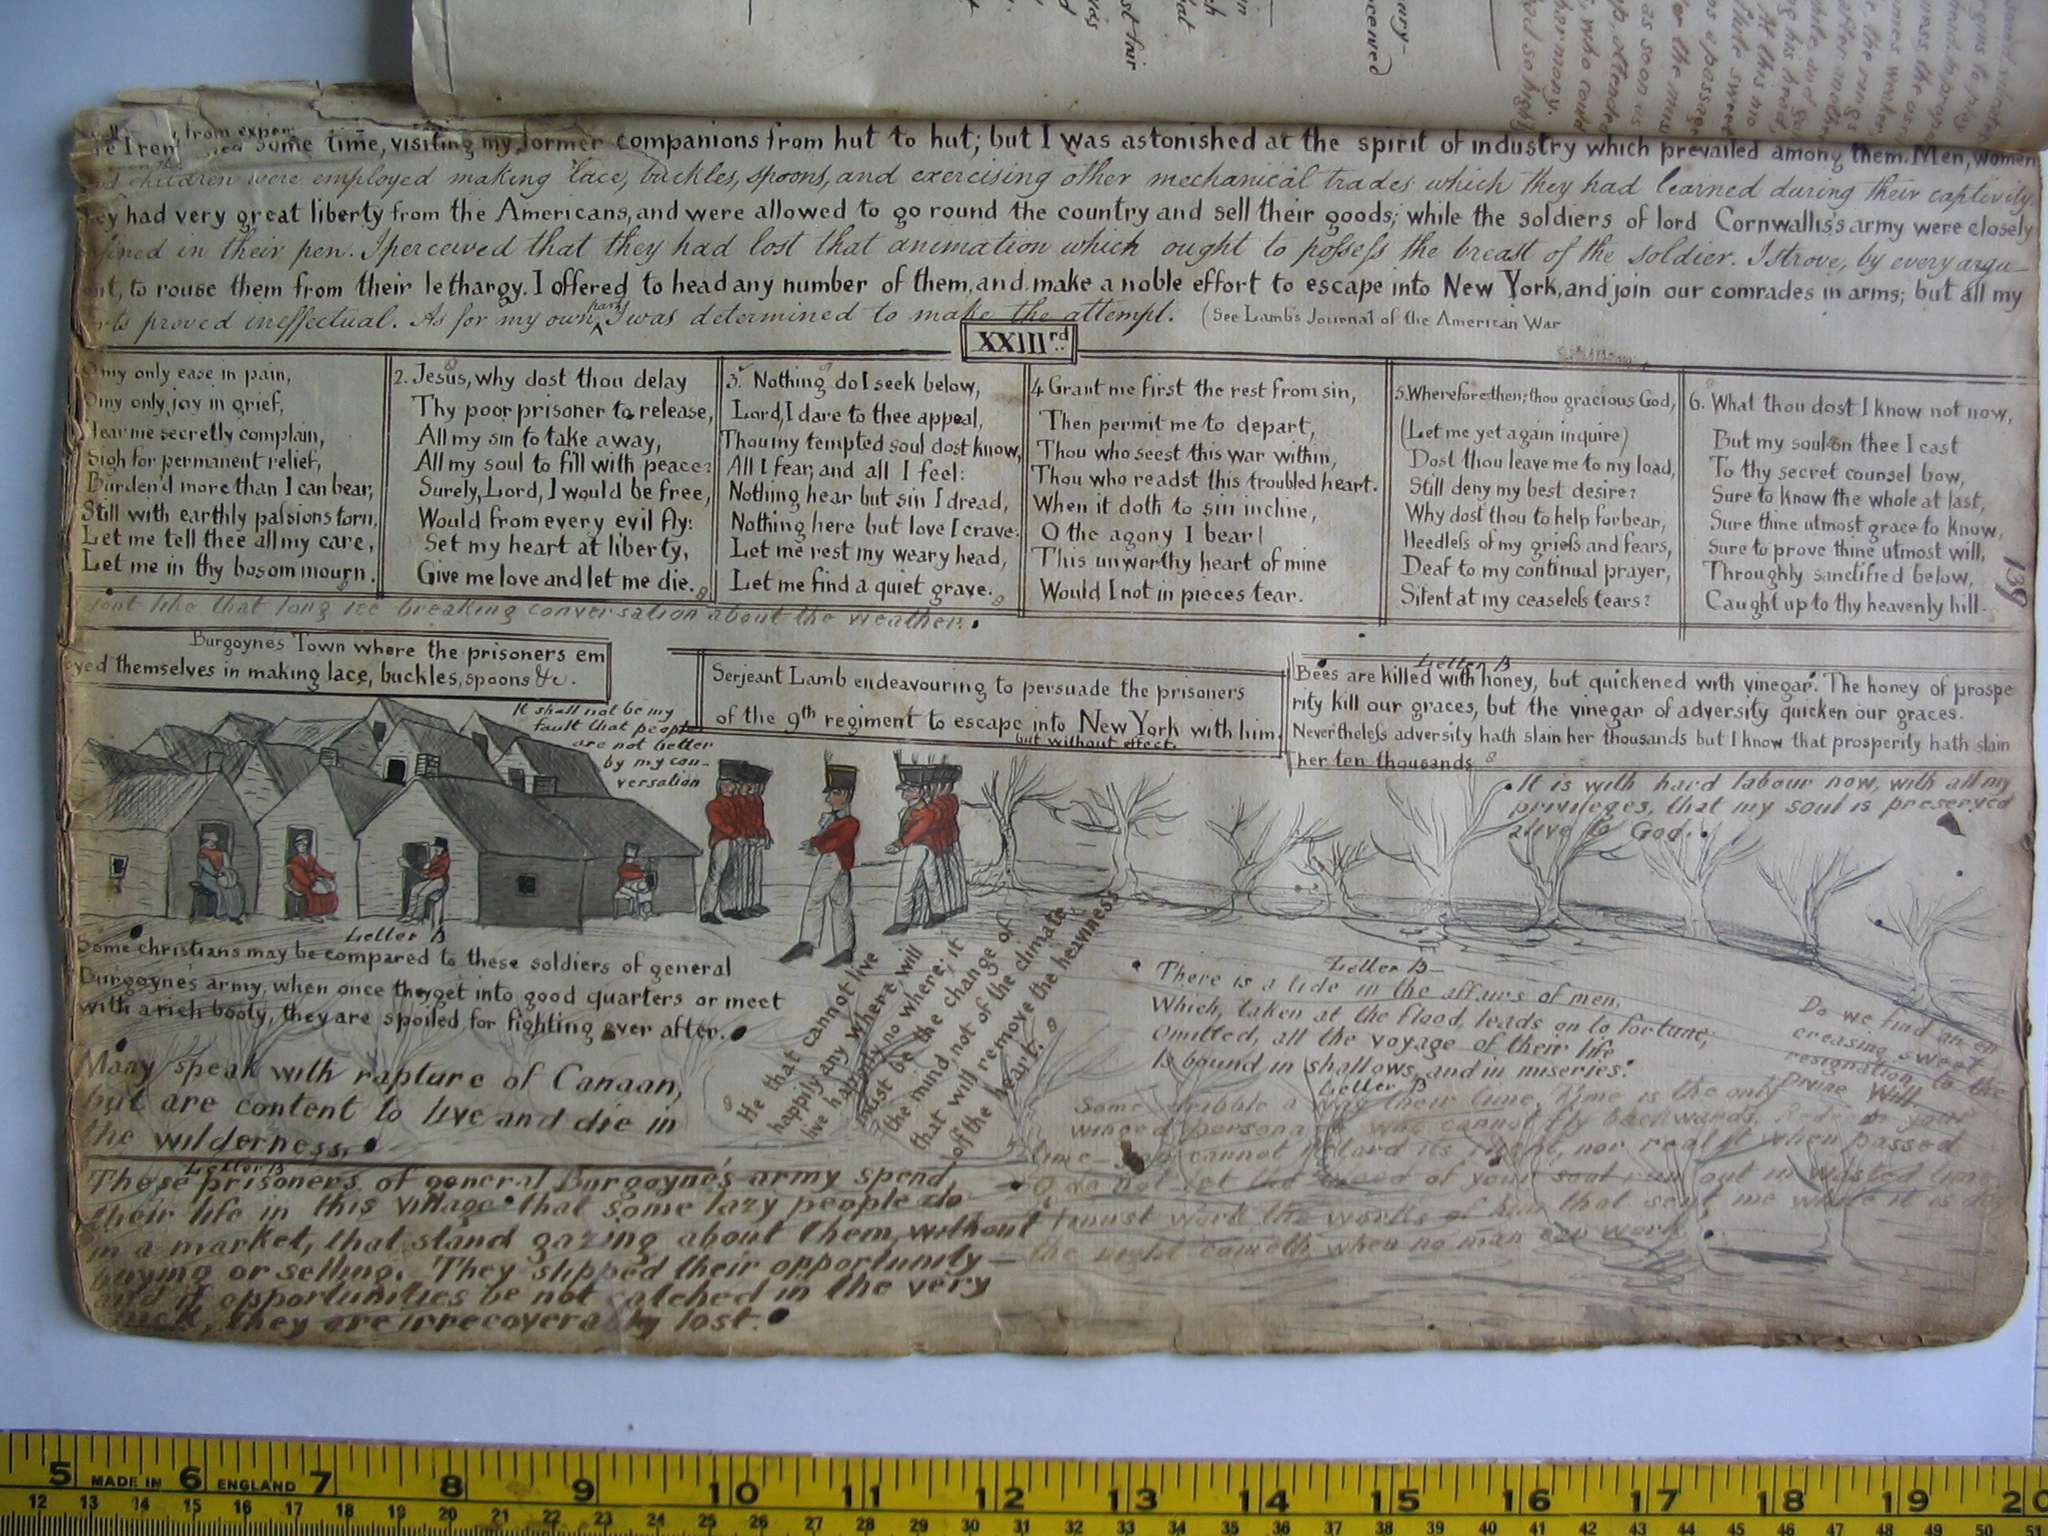 from exper
some time, visiting my former companions from hut to hut; but I was astonished at the spirit of industry which prevailed among them. Men, women
children were employed making lace, buckles, spoons, and exercising other mechanical trades which they had learned during their captivity.
had very great liberty from the Americans, and were allowed to go round the country and sell their goods; while the soldiers of lord Cornwallis's army were closely
in their pen. I perceived that they had lost that animation which ought to possess the breast of the soldier. I strove, by every argu
to rouse them from their lethargy. I offered to head any number of them, and make a noble effort to escape into New York, and join our comrades in arms; but all my
proved ineffectual. As for my own part I was determined to make the attempt. (See Lamb's Journal of the American War
XXIIIrd
O my only ease in pain,
O my only joy in grief,
Hear me secretly complain,
Sigh for permanent relief,
Burden'd more than I can bear,
Still with earthly passions torn,
Let me tell thee all my care,
Let me in thy bosom mourn.
2. Jesus, why dost thou delay
Thy poor prisoner to release,
All my sin to take away,
All my soul to fill with peace?
Surely, Lord, I would be free,
Would from every evil fly:
Set my heart at liberty,
Give me love and let me die.
3. Nothing do I seek below,
Lord, I dare to thee appeal,
Thou my tempted soul dost know,
All I fear, and all I feel:
Nothing hear but sin I dread,
Nothing here but love I crave:
Let me rest my weary head,
Let me find a quiet grave.
4 Grant me first the rest from sin,
Then permit me to depart,
Thou who seest this war within,
Thou who readst this troubled heart.
When it doth to sin incline,
O the agony I bear!
This unworthy heart of mine
Would I not in pieces tear.
5. Wherefore then, thou gracious God,
(Let me yet again inquire)
Dost thou leave me to my load,
Still deny my best desire?
Why dost thou to help forbear,
Heedless of my griefs and fears,
Deaf to my continual prayer,
Silent at my ceaseless tears?
6. What thou dost I know not now,
But my soul on thee I cast
To thy secret counsel bow,
Sure to know the whole at last,
Sure thine utmost grace to know,
Sure to prove thine utmost will,
Throughly sanctified below,
Caught up to thy heavenly hill.
139
like that long ice breaking conversation about the weather.
Burgoynes Town where the prisoners em
themselves in making lace, buckles, spoons &c.
It shall not be my
fault that people
are not better
by my con-
versation
Serjeant Lamb endeavouring to persuade the prisoners
of the 9th regiment to escape into New York with him.
but without effect.
Letter B
Bees are killed with honey, but quickened with vinegar. The honey of prospe
rity kill our graces, but the vinegar of adversity quicken our graces.
Nevertheless adversity hath slain her thousands but I know that prosperity hath slain
her ten thousands
It is with hard labour now, with all my
privileges, that my soul is preserved
alive to God.
Letter B
Some christians may be compared to these soldiers of general
Burgoyne's army, when once they get into good quarters or meet
with a rich booty, they are spoiled for fighting ever after.
Many speak with rapture of Canaan,
but are content to live and die in
the wilderness.
He that cannot live
happily any where, will
live happily no where; it
must be the change of
the mind, not of the climate
that will remove the heaviness
off the heart.
Letter B
There is a tide in the affairs of men,
Which, taken at the flood, leads on to fortune;
Omitted, all the voyage of their life
Is bound in shallows, and in miseries.
Do we find an en
creasing sweet
resignation to the
Divine Will
Letter B
Some dribble away their time. Time is the only
winged personage who cannot fly backwards.
time you cannot retard its flight, nor when passed
O do not let the blood of your soul run out in wasted time.
I must work the works of him that sent me while it is day
the night cometh when no man can work
Letter B
These prisoners of general Burgoyne's army spend
their life in this village that some lazy people do
in a market, that stand gazing about them, without
buying or selling. They slipped their opportunity
and if opportunities be not catched in the very
they are irrecoverably lost.
MADE IN ENGLAND
5 6 7 8 9 10 11 12 13 14 15 16 17 18 19 20
12 13 14 15 16 17 18 19 20 21 22 23 24 25 26 27 28 29 30 31 32 33 34 35 36 37 38 39 40 41 42 43 44 45 46 47 48 49 50 51